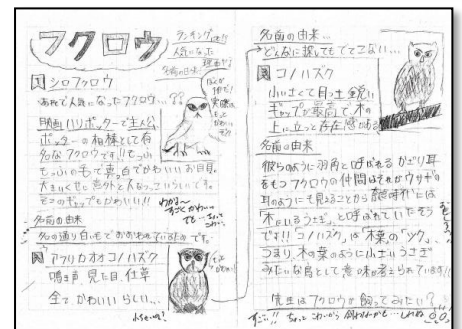 フクロウ
ランキング
人気になった
理由や
名前の由来
1 シロフクロウ
あれで人気になったフクロウ…??
映画ハリーポッターで主人公
ポッターの相棒として有
名なフクロウです!!もっふ
もっふのもで真っ白でかわいいお目目。
大きいくせに意外と人なつこいらしいです。
そこのギャップもかわいい!!
名前の由来
名の通り白いもでおおわれているため です。
2 アフリカオオコノハズク
鳴き声、見た目、仕草
全て、かわいいらしい…。
名前の由来…
どんなに探してもでてこない…
3 コノハズク
小いさくて目っ主鋭い
ギャップが最高で、木の
上に立つと存在感がある
名前の由来
彼らのように羽角と呼ばれるかざり耳
をもつフクロウの仲間はそれがウサギの
耳のようにも見えることから
「木にいるうさぎ」と呼ばれていたそう
です!!コノハズクは「木葉」の「ツク」、
つまり、木の葉のように小さいうさぎ
みたいな鳥として意味が考えられています!!
先生はフクロウが飼ってみたい?